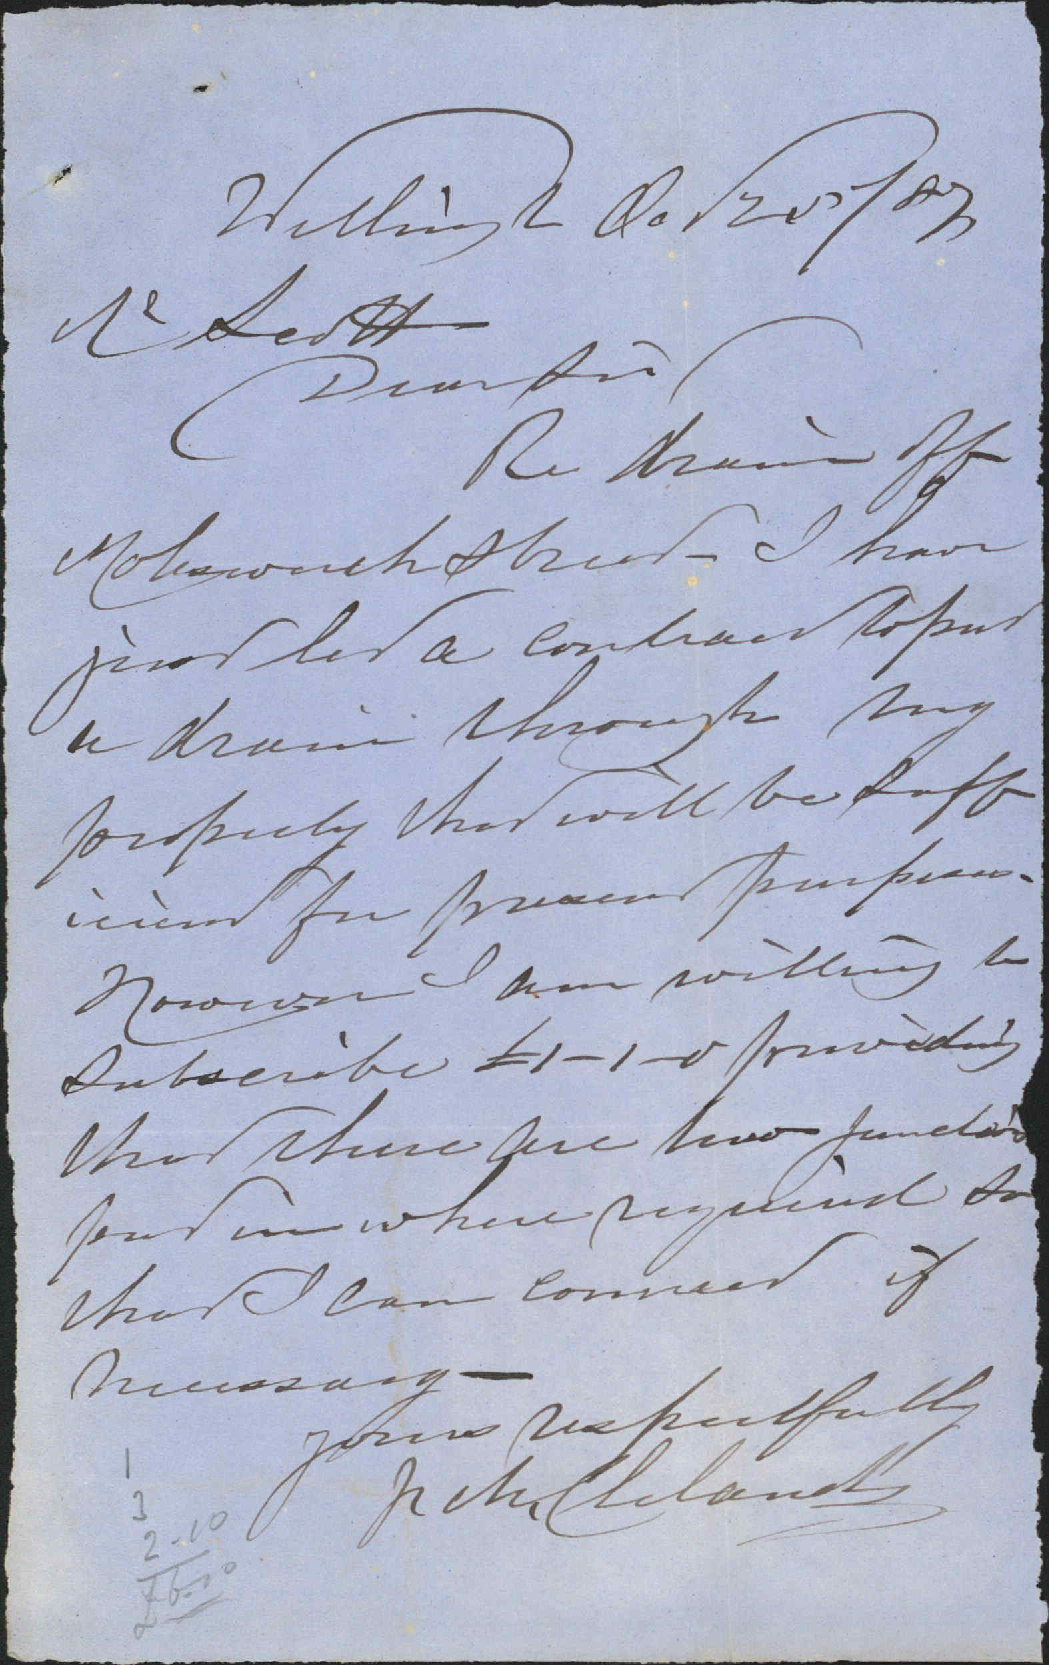 Wellington Oct 25/87
Mr Scott
Dear Sir
Re drain off
Molesworth Street - I have
just let a contract to put
a drain through my
property that will be suff
icient for present purposes -
However I am willing to
subscribe £1-1-0 providing
that there are two junctions
put in where required so
that I can connect if
necessary -
yours respectfully
Clelands
1
3
2-10
£6-10